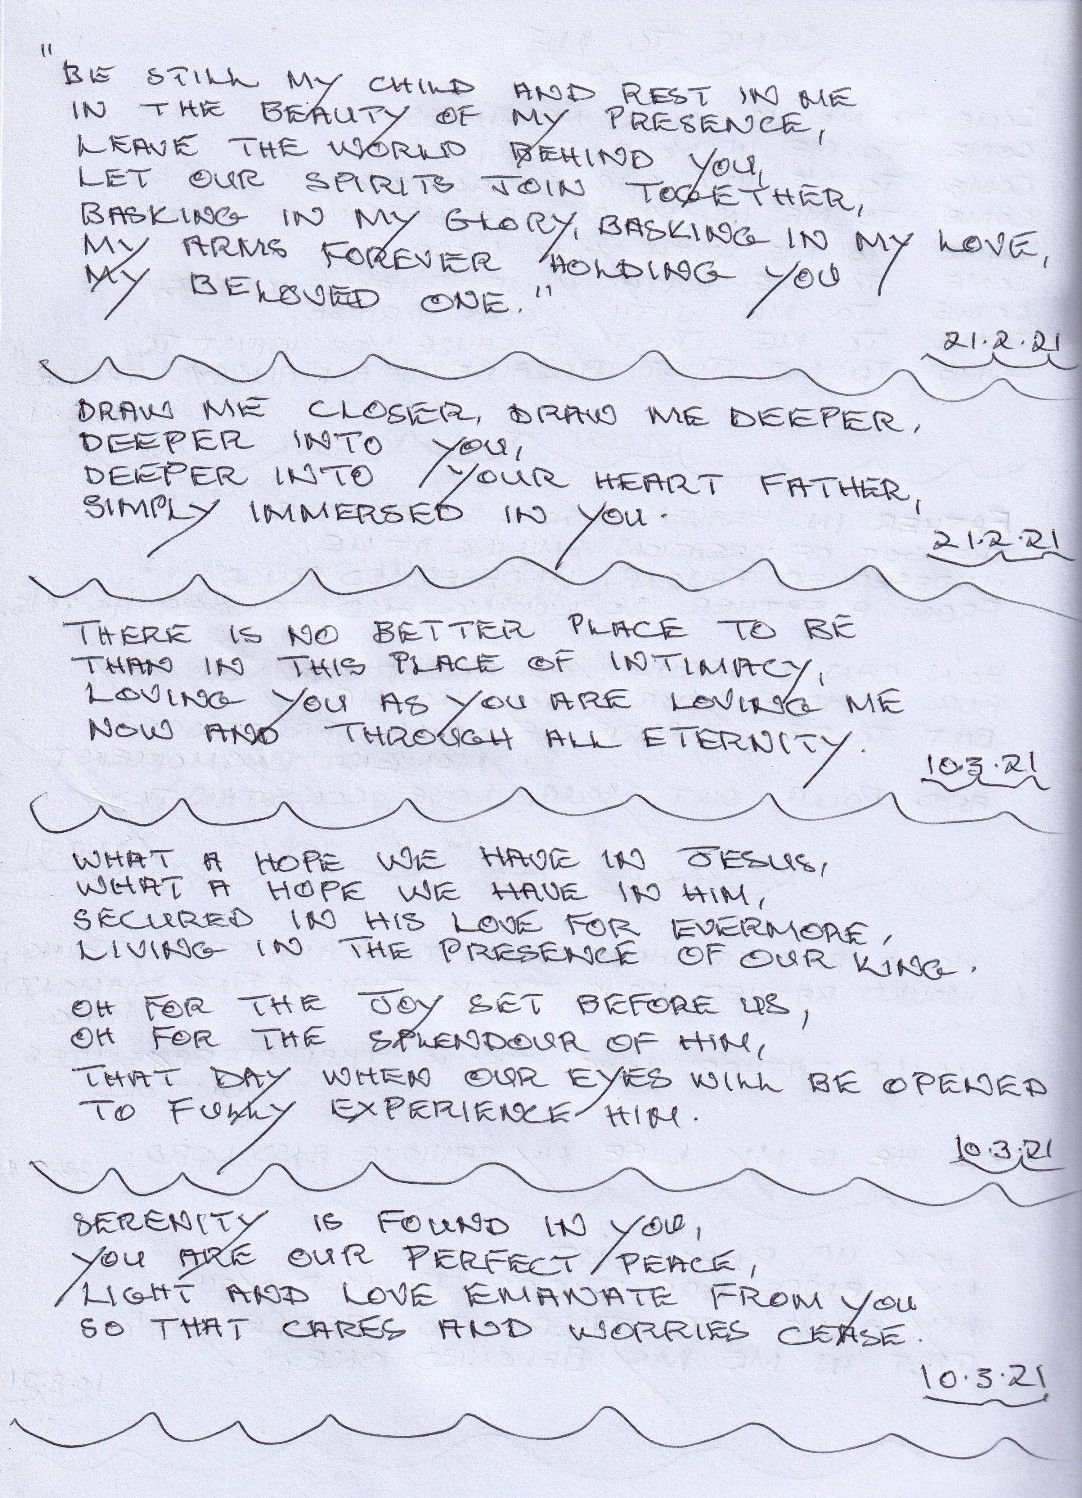 "
BE STILL MY CHILD AND REST IN ME
IN THE BEAUTY OF MY PRESENCE,
LEAVE THE WORLD BEHIND YOU,
LET OUR SPIRITS JOIN TOGETHER,
BASKING IN MY GLORY, BASKING IN MY LOVE,
MY ARMS FOREVER HOLDING YOU
MY BELOVED ONE."
21.2.21
DRAW ME CLOSER, DRAW ME DEEPER,
DEEPER INTO YOU,
DEEPER INTO YOUR HEART FATHER,
SIMPLY IMMERSED IN YOU.
21.2.21
THERE IS NO BETTER PLACE TO BE
THAN IN THIS PLACE OF INTIMACY,
LOVING YOU AS YOU ARE LOVING ME
NOW AND THROUGH ALL ETERNITY.
10.3.21
WHAT A HOPE WE HAVE IN JESUS,
WHAT A HOPE WE HAVE IN HIM,
SECURED IN HIS LOVE FOR EVERMORE,
LIVING IN THE PRESENCE OF OUR KING.
OH FOR THE JOY SET BEFORE US,
OH FOR THE SPLENDOUR OF HIM,
THAT DAY WHEN OUR EYES WILL BE OPENED
TO FULLY EXPERIENCE HIM.
10.3.21
SERENITY IS FOUND IN YOU,
YOU ARE OUR PERFECT PEACE,
LIGHT AND LOVE EMANATE FROM YOU
SO THAT CARES AND WORRIES CEASE.
10.3.21